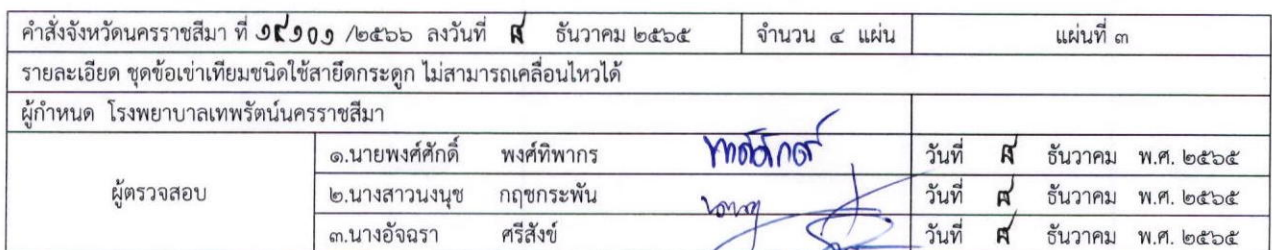 คำสั่งจังหวัดนครราชสีมา ที่ ๑๙๑๐๑ /๒๕๖๖ ลงวันที่ ๘ ธันวาคม ๒๕๖๕ จำนวน ๔ แผ่น แผ่นที่ ๓
รายละเอียด ชุดข้อเข่าเทียมชนิดใช้สายยึดกระดูก ไม่สามารถเคลื่อนไหวได้
ผู้กำหนด โรงพยาบาลเทพรัตน์นครราชสีมา
ผู้ตรวจสอบ
๑.นายพงศ์ศักดิ์ พงศ์ทิพากร วันที่ ๘ ธันวาคม พ.ศ. ๒๕๖๕
๒.นางสาวนงนุช กฤชกระพัน วันที่ ๘ ธันวาคม พ.ศ. ๒๕๖๕
๓.นางอัจฉรา ศรีสังข์ วันที่ ๘ ธันวาคม พ.ศ. ๒๕๖๕